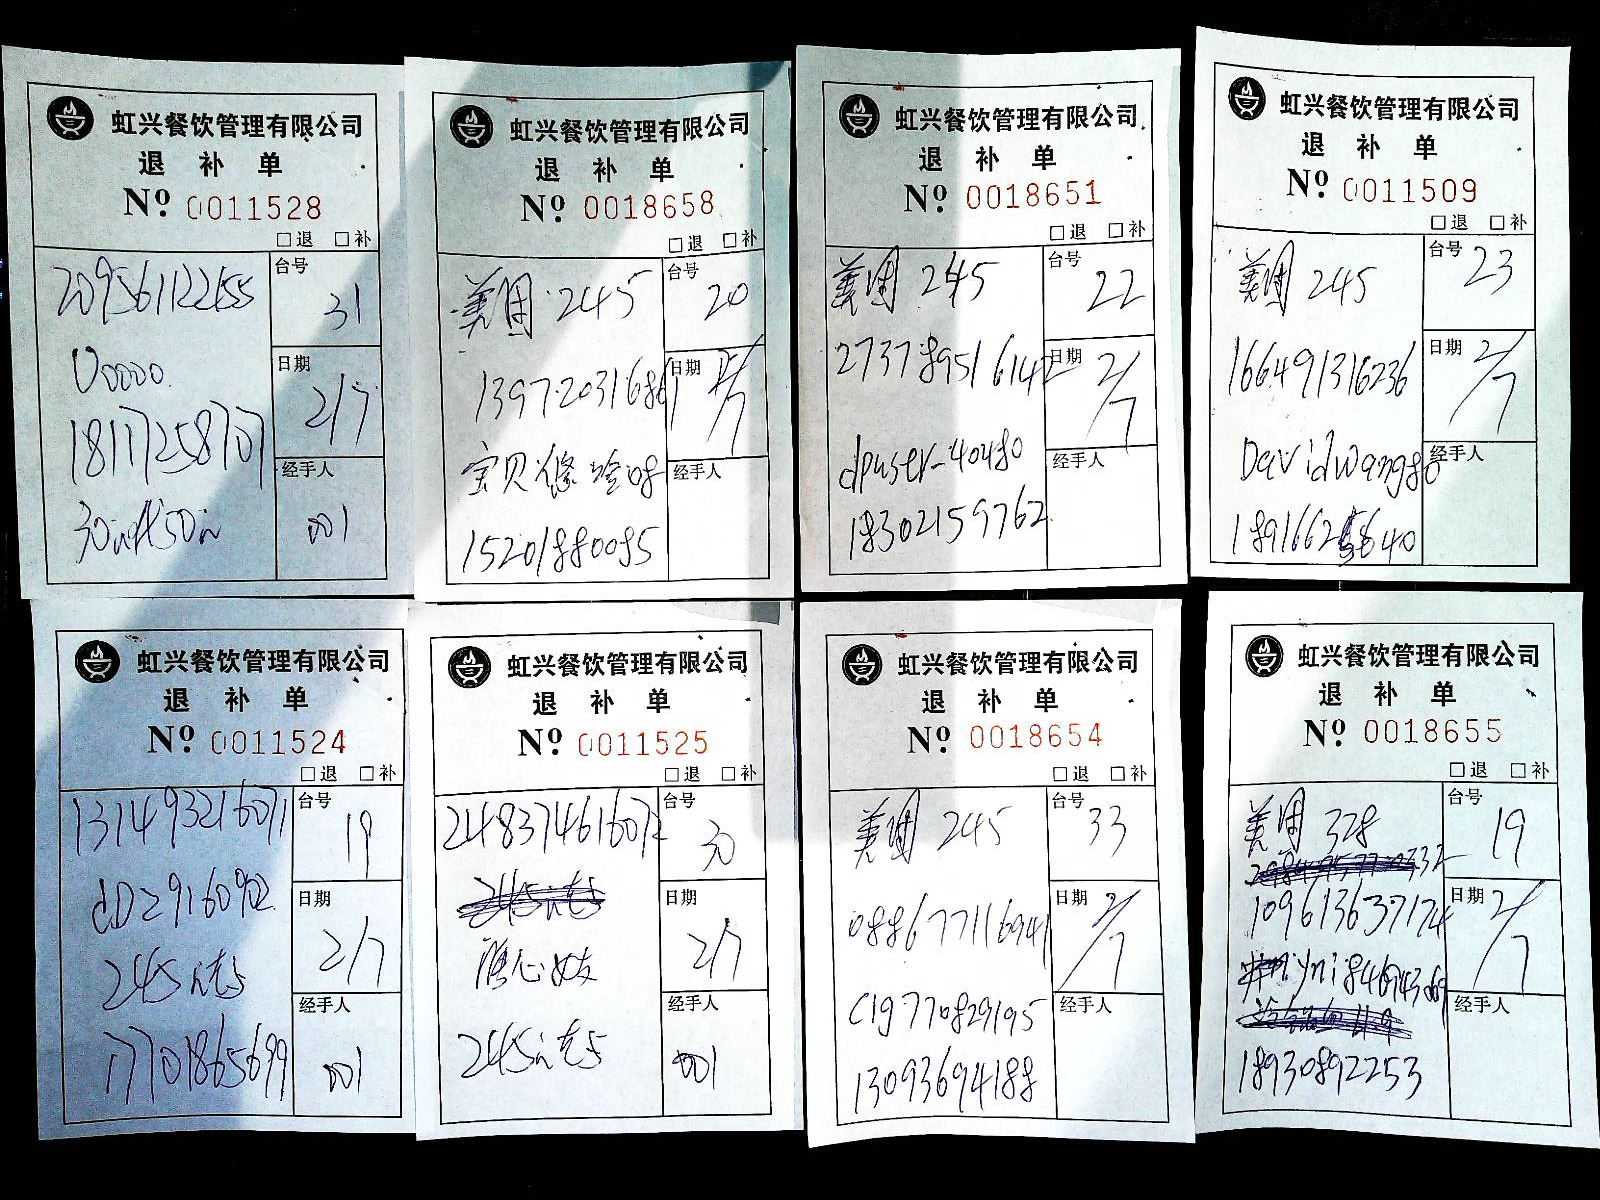 虹兴餐饮管理有限公司
退 补 单
Nº 0011528
□退 □补
209561122655
台号
31
00000.
日期
2/7
18117258707
经手人
001
虹兴餐饮管理有限公司
退 补 单
Nº 0018658
□退 □补
美团 245
台号
20
139720316861
日期
2/7
宝贝悠哈啰
经手人
15201880085
虹兴餐饮管理有限公司
退 补 单
Nº 0018651
□退 □补
美团 245
台号
22
273789516142
日期
2/7
dpuser-40480
经手人
18302159762
虹兴餐饮管理有限公司
退 补 单
Nº 0011509
□退 □补
美团 245
台号
23
166491316236
日期
2/7
Davidwang80
经手人
虹兴餐饮管理有限公司
退 补 单
Nº 0011524
□退 □补
131493216071
台号
19
dD2916092
日期
2/7
245
经手人
17701865699
001
虹兴餐饮管理有限公司
退 补 单
Nº 0011525
□退 □补
248374616072
台号
30
日期
2/7
245
经手人
001
虹兴餐饮管理有限公司
退 补 单
Nº 0018654
□退 □补
美团 245
台号
33
088677116941
日期
2/7
C19770829195
经手人
13093694188
虹兴餐饮管理有限公司
退 补 单
Nº 0018655
□退 □补
美团 328
台号
19
109613637174
日期
2/7
经手人
18930892253